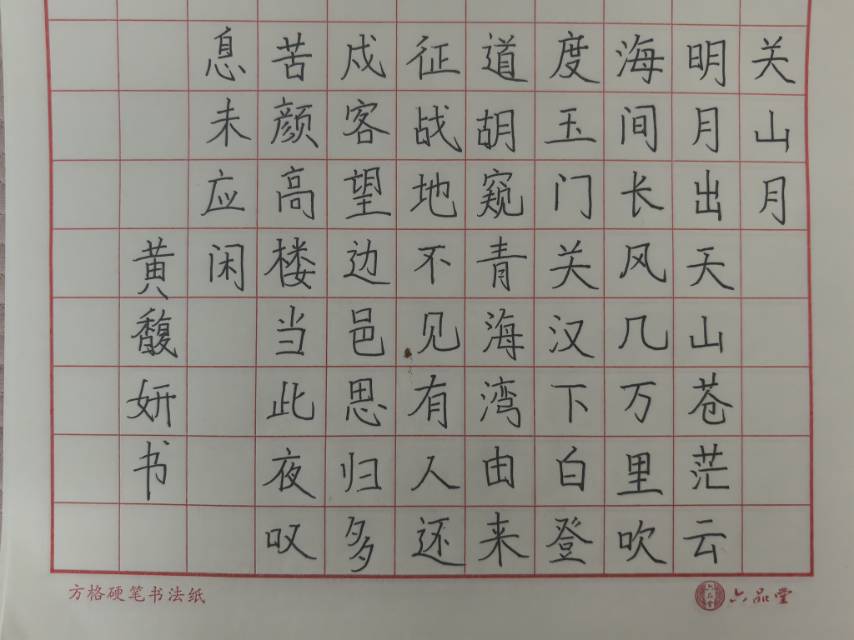 关山月
明月出天山苍茫云
海间长风几万里吹
度玉门关汉下白登
道胡窥青海湾由来
征战地不见有人还
戍客望边邑思归多
苦颜高楼当此夜叹
息未应闲
黄馥妍书
方格硬笔书法纸
六品堂